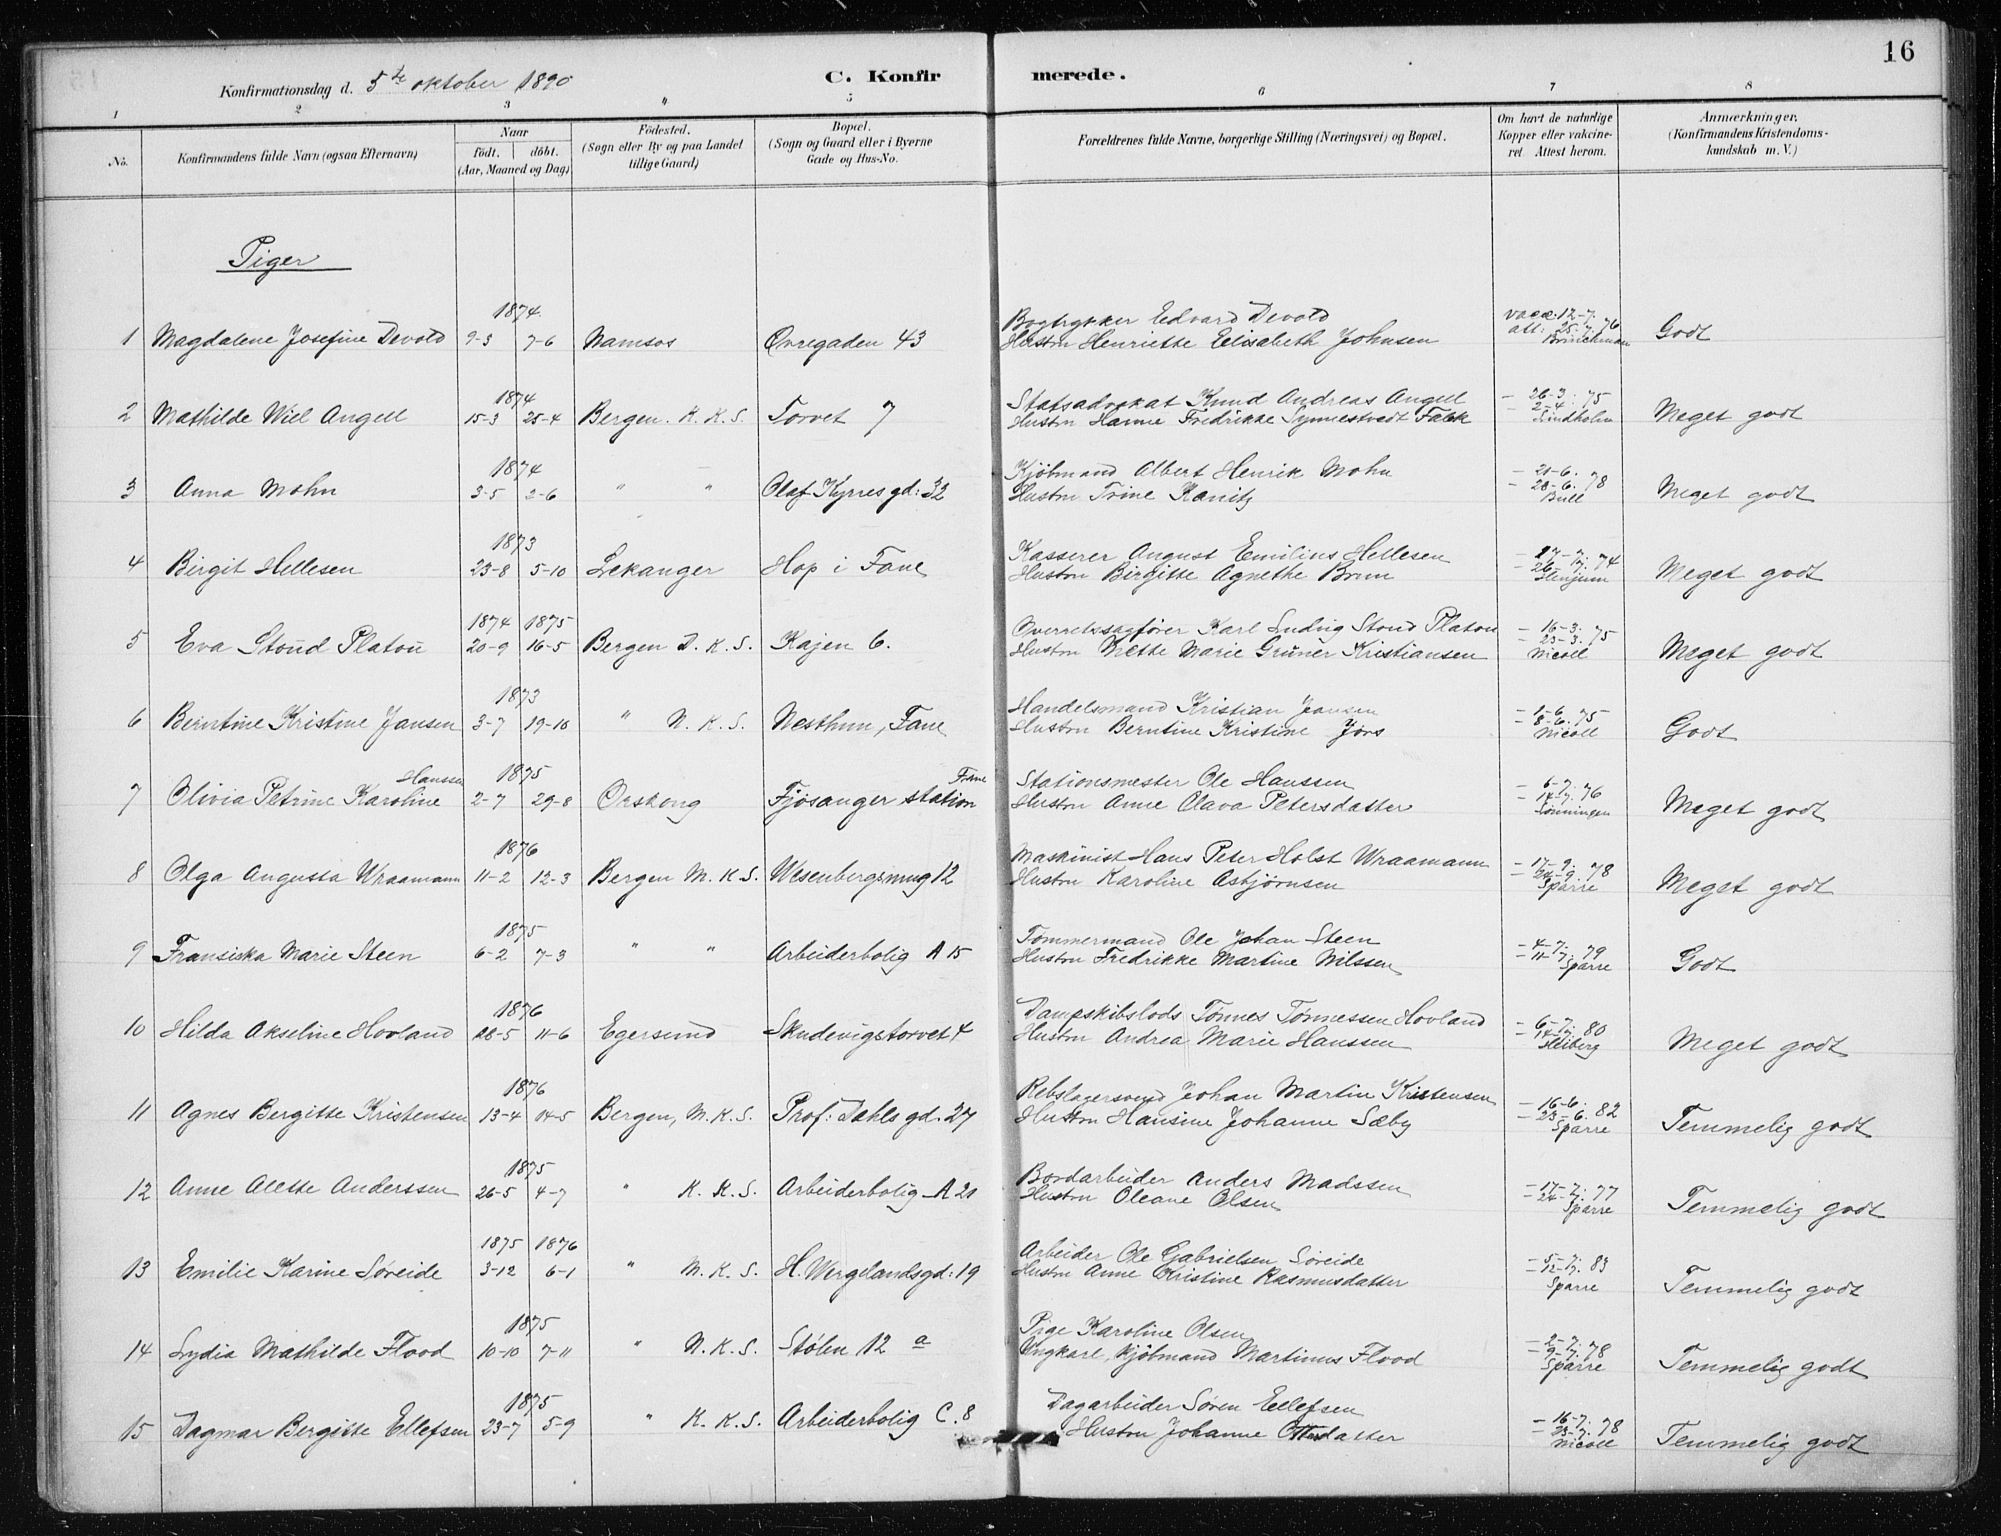 16
Konfirmationsdag d. 5te oktober 1890
C. Konfirmerede.
1 2 3 4 5 6 7 8
No. Konfirmandens fulde Navn (ogsaa Efternavn) Naar födt. döbt. (Aar, Maaned og Dag) Födested. (Sogn eller By og paa Landet tillige Gaard) Bopæl. (Sogn og Gaard eller i Byerne Gade og Hus-No. Forældrenes fulde Navne, borgerlige Stilling (Næringsvei) og Bopæl. Om havt de naturlige Kopper eller vakcineret. Attest herom. Anmærkninger. (Konfirmandens Kristendomskundskab m. V.)
Piger
1874
Bogtrykker Edvard Devold vacc: 12-7.
1 Magdalene Josefine Devold 9-3 7-6 Namsos Øvregaden 43 Hustru Henriette Elisabeth Johnsen att: 25-7. 76 Brinchman Godt
1874
Statsadvokat Knud Andreas Angell - 26-3. 75
2 Mathilde Wiel Angell 15-3 25-4 Bergen. K. K. S. Torvet 7 Hustru Hanne Fredrikke Synnestvedt Falck - 2-4. Lindholm Meget godt
1874
Kjøbmand Albert Henrik Mohn - 20-6.
3 Anna Mohn 3-5 2-6 " " Olaf Kyrres gd: 32 Hustru Trine Kanitz - 28-6. 78 Bull Meget godt
1873
Kasserer August Emilius Hellesen - 17-7. 74
4 Birgit Hellesen 23-8 5-10 Lekanger Hop i Fane Hustru Birgitte Agnethe Brun - 26-7. Meget godt
1874 1875
Overretssagfører Karl Ludvig Stoud Platou - 16-3. 75
5 Eva Stoud Platou 20-9 16-5 Bergen D. K. S. Kajen 6. Hustru Mette Marie Grüner Kristiansen - 23-3. Nicoll Meget godt
1873
Handelsmand Kristian Jansen - 1-6. 75
6 Berntine Kristine Jansen 3-7 19-10 " N. K. S. Nesthun, Fane Hustru Berntine Kristine Jørs - 8-6. Nicoll Godt
Hanssen 1875 Fane
Stationsmester Ole Hanssen - 6-7. 76
7 Olivia Petrine Karoline 2-7 29-8 Orskoug Fjøsanger station Hustru Anne Olava Petersdatter - 14-7. Meget godt
1876
Maskinist Hans Peter Holst Wraamann - 17-9. 78
8 Olga Augusta Wraamann 11-2 12-3 Bergen M. K. S. Wesenbergsmug 12 Hustru Karoline Asbjørnsen - 24-9. Sparre Meget godt
1875
Tømmermand Ole Johan Steen - 4-7. 79
9 Fransiska Marie Steen 6-2 7-3 " " Arbeiderbolig A 15 Hustru Fredrikke Martine Nilssen - 11-7. Sparre Godt
1876
Dampskibslods Tønnes Tønnessen Hovland - 6-7. 80
10 Hilda Akseline Hovland 28-5 11-6 Egersund Skudevigstorvet 4 Hustru Andrea Marie Hanssen - 14-7. Heiberg Meget godt
1876
Rebslagersvend Johan Martin Kristensen - 16-6. 82
11 Agnes Bergitte Kristensen 13-4 14-5 Bergen, M. K. S. Prof: Dahls gd. 27 Hustru Hansine Johanne Sæby - 23-6. Sparre Temmelig godt
1875
Bordarbeider Anders Madssen - 17-7. 77
12 Anne Alette Anderssen 26-5 4-7 " K. K. S. Arbeiderbolig A 21 Hustru Oleane Olsen - 24-7. Sparre Temmelig godt
1875 1876
Arbeider Ole Gabrielsen Søreide - 5-7. 83
13 Emilie Karine Søreide 3-12 6-1 " M. K. S. H. Wergelandsgd: 19 Hustru Anne Kristine Rasmusdatter - 12-7. Sparre Temmelig godt
1875
Pige Karoline Olsen - 2-7. 78
14 Lydia Mathilde Flood 10-10 7-11 " N. K. S. Stølen 12 a Ungkarl, kjøbmand Martinus Flood - 9-7. Sparre Temmelig godt
1875
Dagarbeider Søren Ellefsen - 16-7. 78
15 Dagmar Bergitte Ellefsen 23-7 5-9 " K. K. S. Arbeiderbolig C. 8 Hustru Johanne Ottesdatter - 23-7. Nicoll Temmelig godt